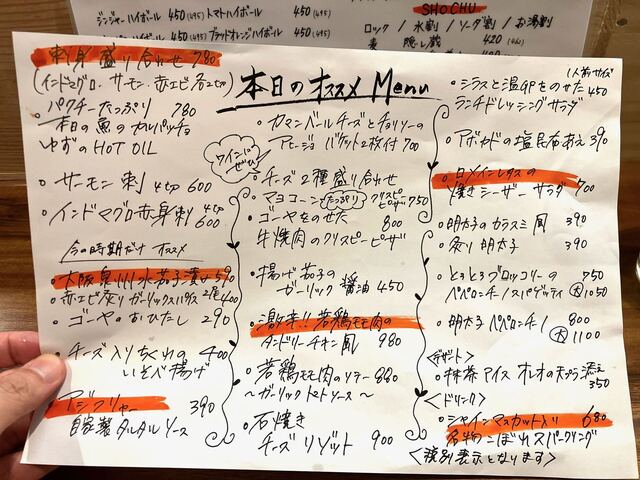 ジンジャーハイボール 450(495) トマトハイボール 450(495)
450(495) ブラッドオレンジハイボール 450(495)
SHOCHU
ロック / 水割 / ソーダ割 / お湯割
麦 隠し蔵 420
本日のオススメ Menu
刺身盛り合わせ 780
(インドマグロ、サーモン、赤エビ 各2切)
・パクチーたっぷり 780
本日の魚のカルパッチョ
ゆずのHOT OIL
・サーモン刺 4切 600
・インドマグロ赤身刺 4切 600
今の時期だけ オススメ
・大阪泉州水茄子漬け 590
・赤エビ炙り ガーリックバター 2尾 400
・ゴーヤのおひたし 290
・チーズ入りちくわの 400
いそべ揚げ
・アジフライ 390
自家製タルタルソース
ワインにぜひ!
・カマンベールチーズとチョリソーの
アヒージョ バゲット2枚付 700
・チーズ2種盛り合わせ
・マヨコーンたっぷりクリスピーピザ 750
・ゴーヤをのせた 800
牛焼肉のクリスピーピザ
・揚げ茄子の
ガーリック醤油 450
・激辛!! 若鶏モモ肉の
タンドリーチキン風 980
・若鶏モモ肉のソテー 880
～ガーリックトマトソース～
・石焼き
チーズリゾット 900
1人前サイズ
・シラスと温卵をのせた 450
ランチドレッシングサラダ
・アボカドの塩昆布あえ 390
・ロメインレタスの
焼きシーザーサラダ 700
・明太子のカラスミ風 390
・炙り明太子 390
・とろとろブロッコリーの 750
ペペロンチーノスパゲッティ 大1050
・明太子ペペロンチーノ 800
大1100
<デザート>
・抹茶アイス オレオの天ぷら添え
350
<ドリンク>
・シャインマスカット入り 680
名物こぼれスパークリング
<税別表示となります>